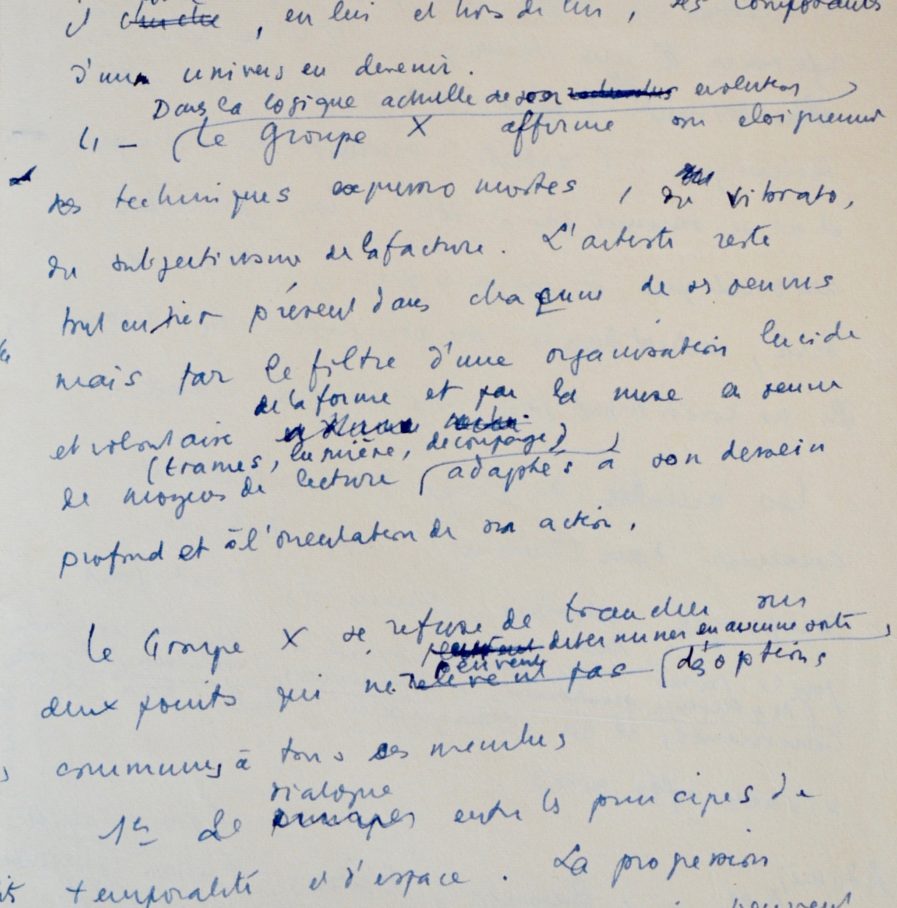 et cherche, en lui et hors de lui, les composants
d'un univers en devenir.
Dans la logique actuelle de son évolution
4 - Le Groupe X affirme son éloignement
des techniques expressionnistes, du vibrato,
du subjectivisme de la facture. L'artiste reste
tout entier présent dans chacune de ses oeuvres
mais par le filtre d'une organisation lucide
de la forme et par la mise en oeuvre
et volontaire
(trames, lumière, découpage)
de moyens de lecture adaptés à son dessein
profond et à l'orientation de son action.
Le Groupe X se refuse de trancher sur
déterminer en aucune sorte
peuvent
deux points qui ne relèvent pas des options
communes à tous ses membres
dialogue
1er Le entre les principes de
temporalité et d'espace. La progression
peuvent